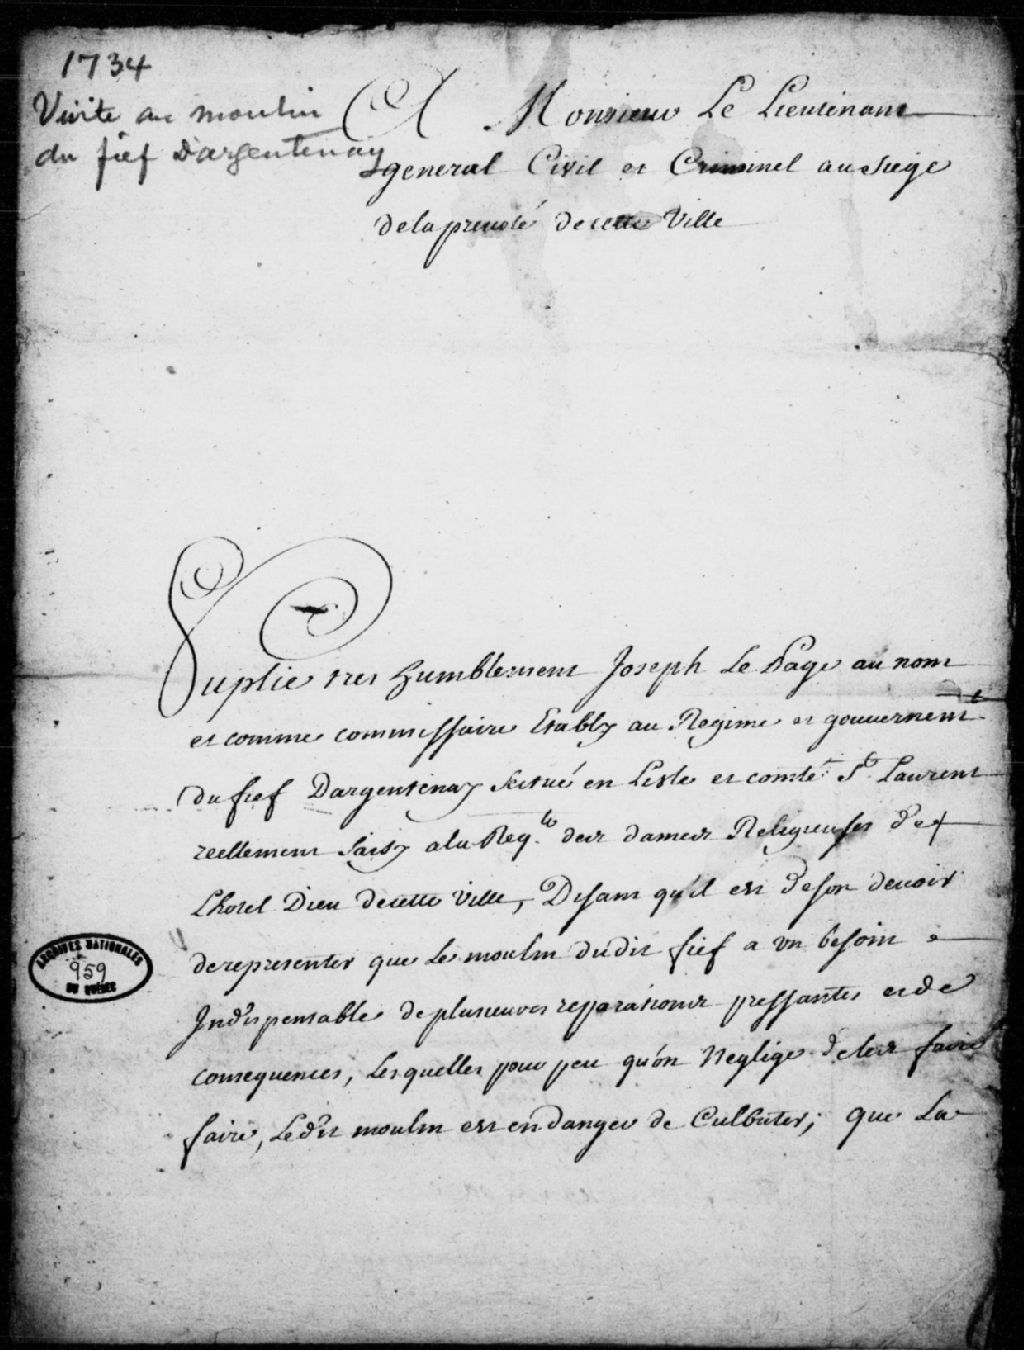 1734
Visite au moulin
du fief Dargentenay
A Monsieur Le Lieutenant
general Civil et Criminel au siege
de la prevoté de cette Ville
Suplie tres humblement Joseph Le Page au nom
et comme commissaire Etably au Regime et gouvernemt
du fief Dargentenay scitué en Lisle et comté St Laurent
reellement saisy a la Reqte des dames Religieuses de
Lhotel Dieu de cette Ville, Disant qu'il est de son devoir
de representer que le moulin dudit fief a un besoin
Indispensable de plusieurs reparations pressantes et de
consequences, Lesquelles pour peu qu'on Neglige de les faire
faire, Ledit moulin est en danger de Culbuter; que La
ARCHIVES NATIONALES
959
DU QUÉBEC